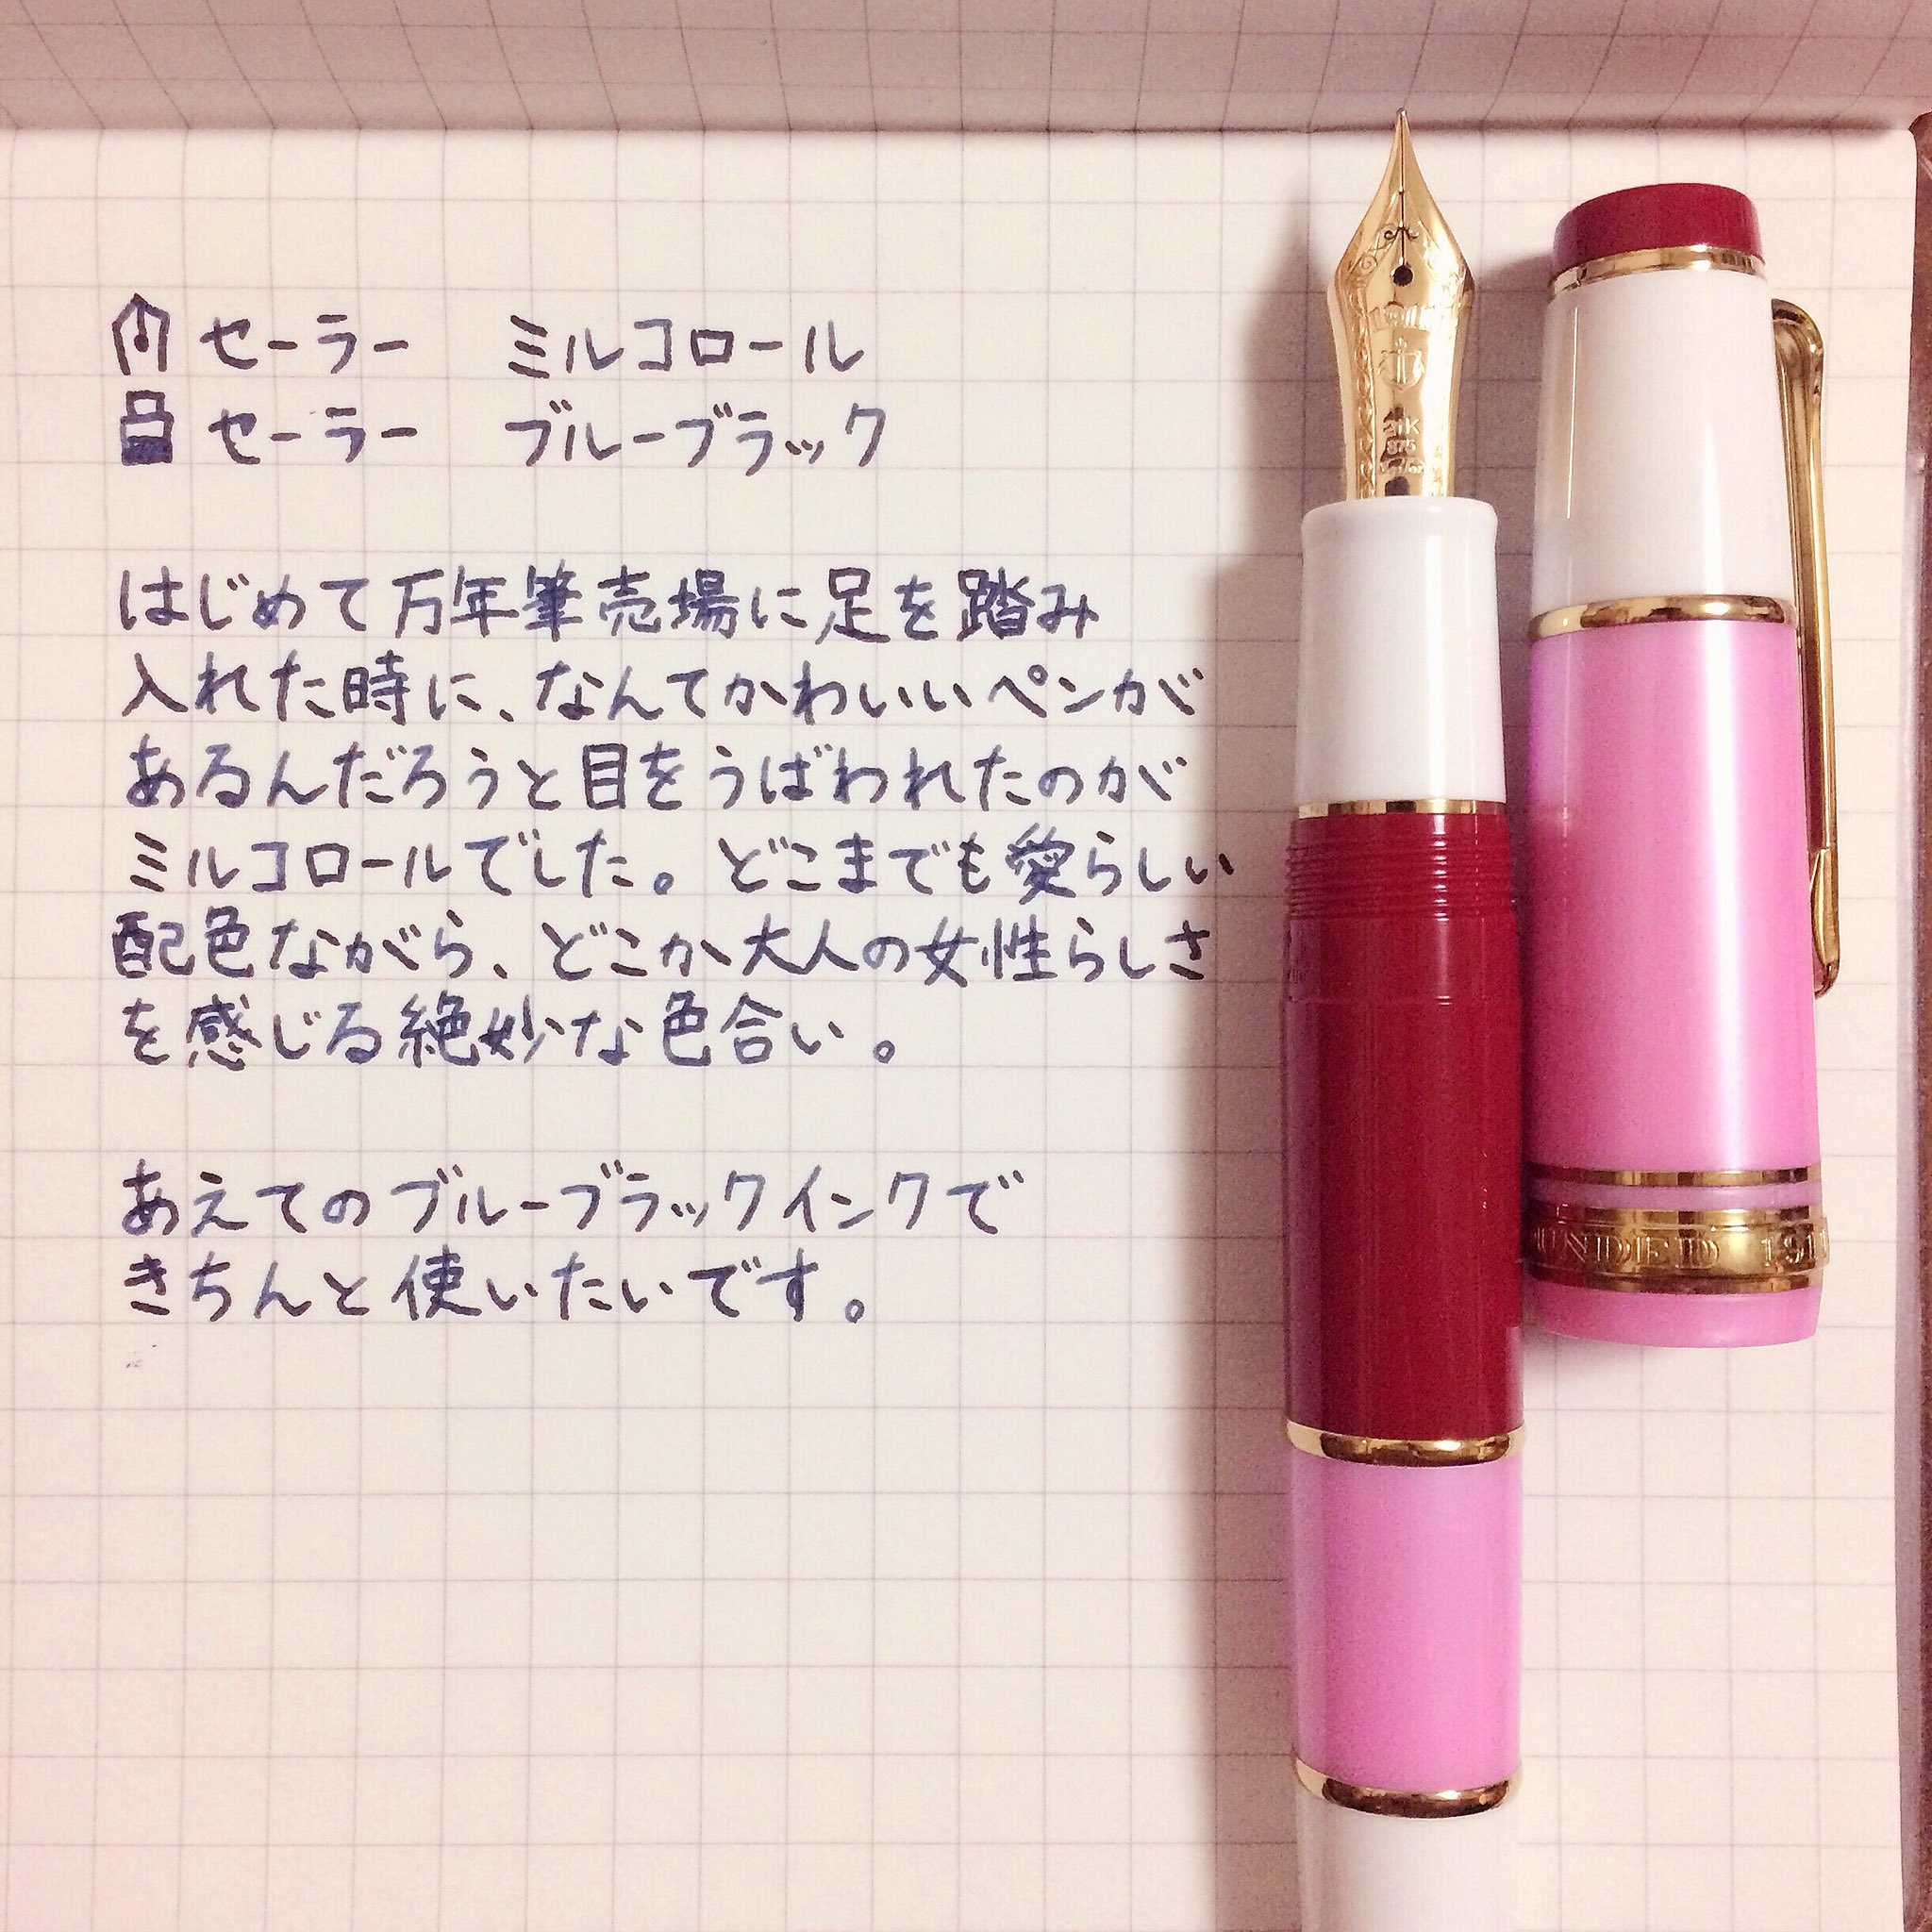 セーラー ミルコロール
セーラー ブルーブラック
はじめて万年筆売場に足を踏み
入れた時に、なんてかわいいペンが
あるんだろうと目をうばわれたのが
ミルコロールでした。どこまでも愛らしい
配色ながら、どこか大人の女性らしさ
を感じる絶妙な色合い。
あえてのブルーブラックインクで
きちんと使いたいです。
1911
21K
875
UNDED 191